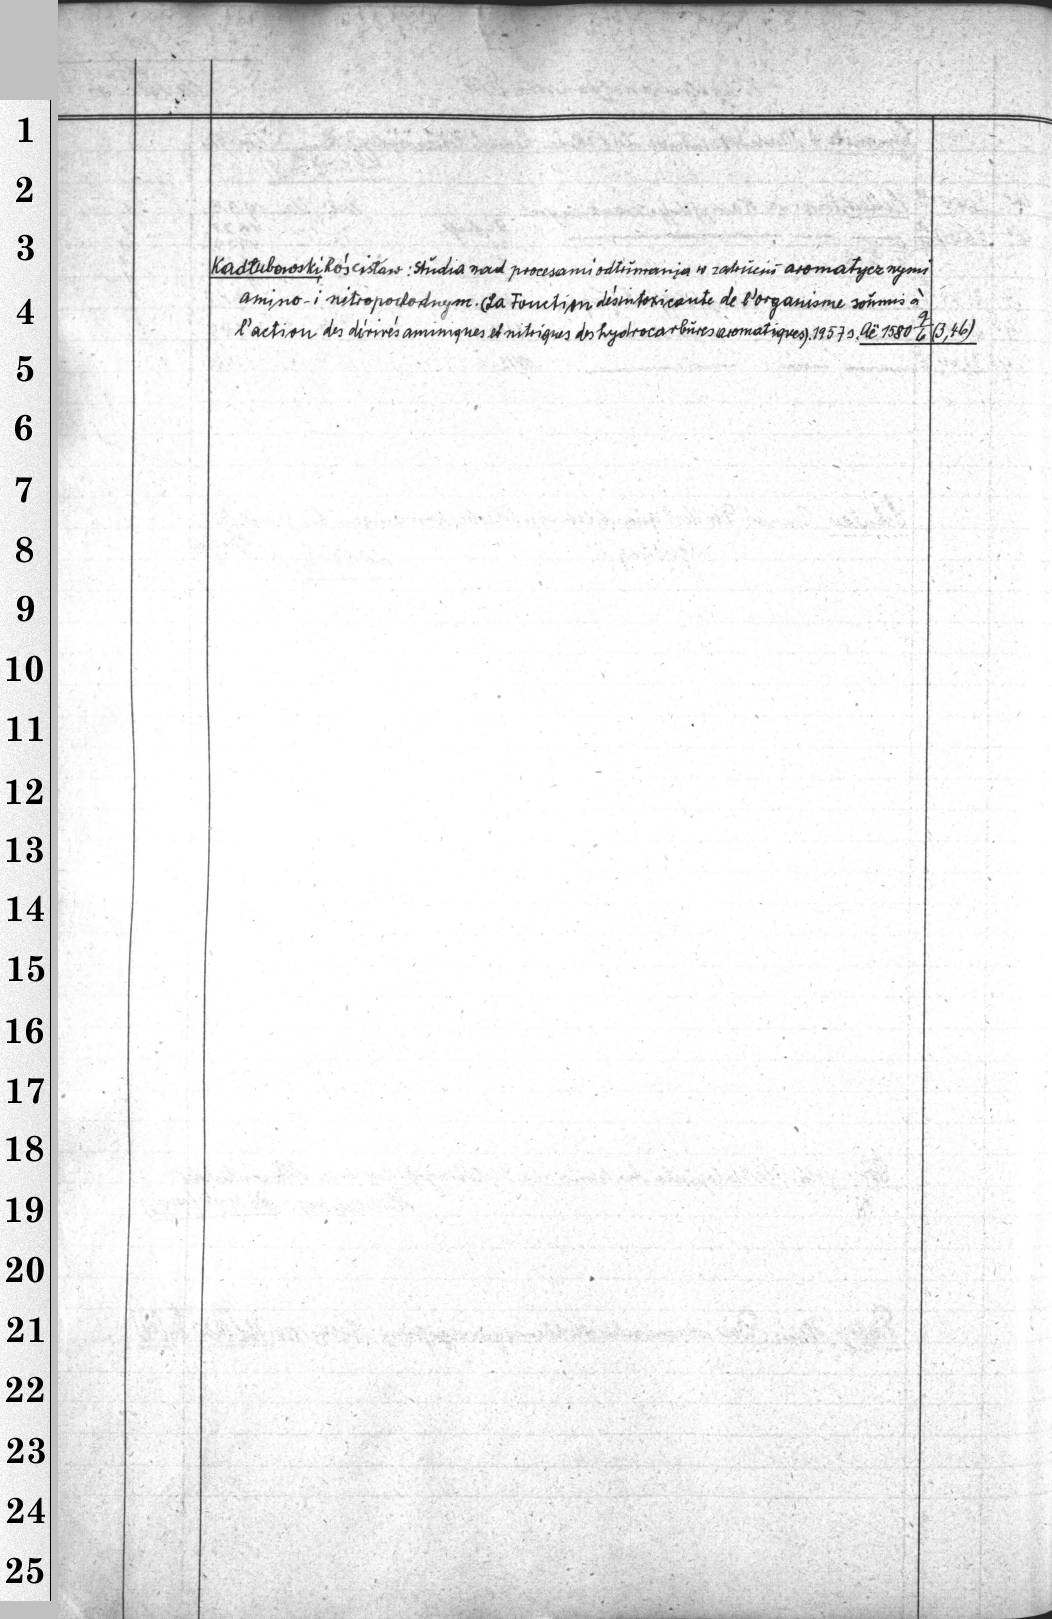 1
2
3
Kadłubowski, Rościsław: Studia nad procesami odtruwania w zatruciu aromatycznymi
4
amino- i nitropochodnym. (La Fonction désintoxicante de l'organisme soumis à
l'action des dérivés aminques et nitriques des hydrocarbures aromatiques). 1957 s. Aë 1580 9/6 (3,46)
5
6
7
8
9
10
11
12
13
14
15
16
17
18
19
20
21
22
23
24
25